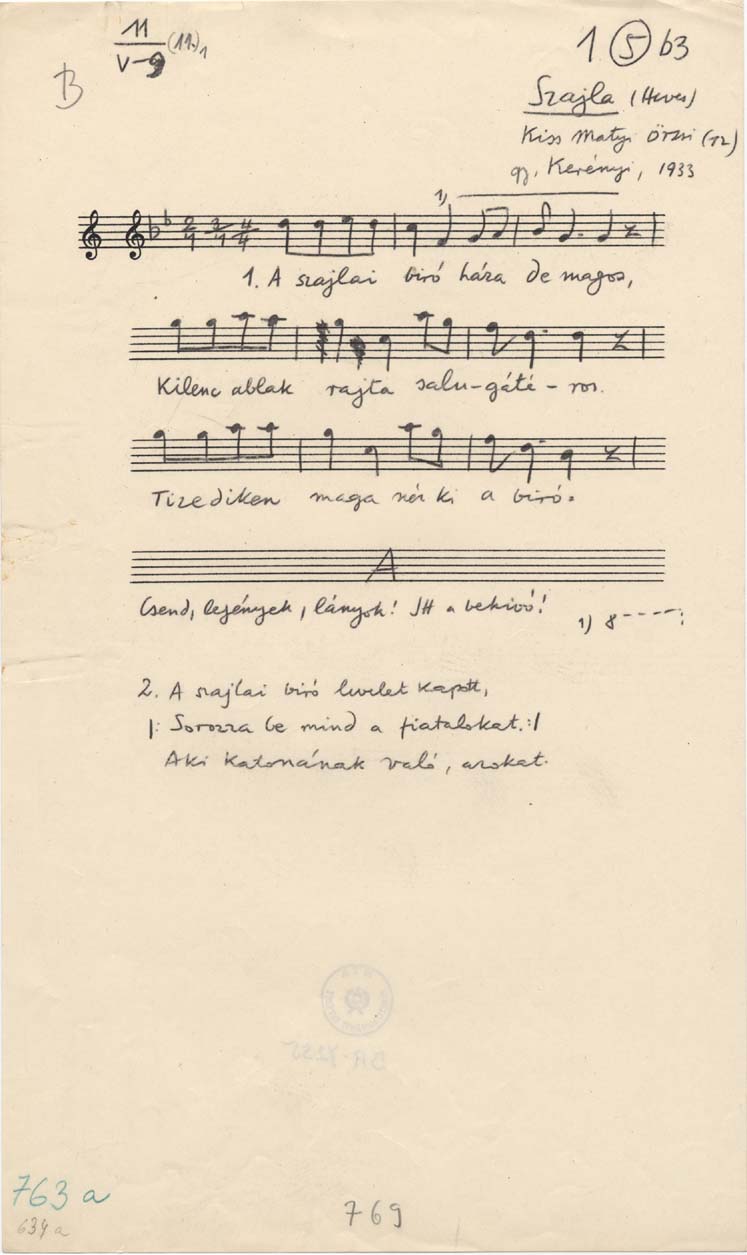 11
V-9 (11.)1
B
1 5 b3
Szajla (Heves)
Kiss Matyi Örzsi (12)
gy. Kerényi, 1933
2/4 3/4 4/4
1)
1. A szajlai biró háza de magos,
Kilenc ablak rajta salu-gáté-ros.
Tizediken maga néz ki a biró.
A
Csend, legények, lányok! Itt a bekivó!
1) 8----:
2. A szajlai biró levelet kapott,
|: Sorozza be mind a fiatalokat. :|
Aki katonának való, azokat.
763 a
634 a
769